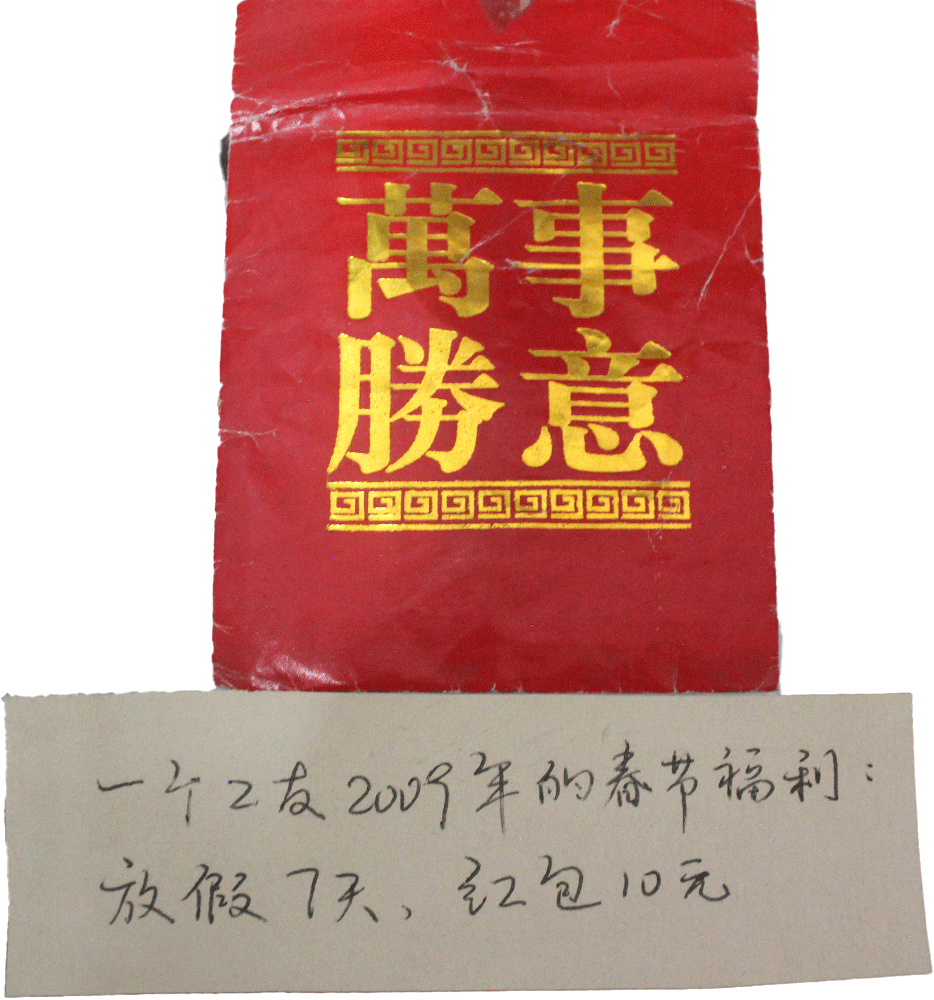 萬事
勝意
一个工友2009年的春节福利：
放假7天、红包10元